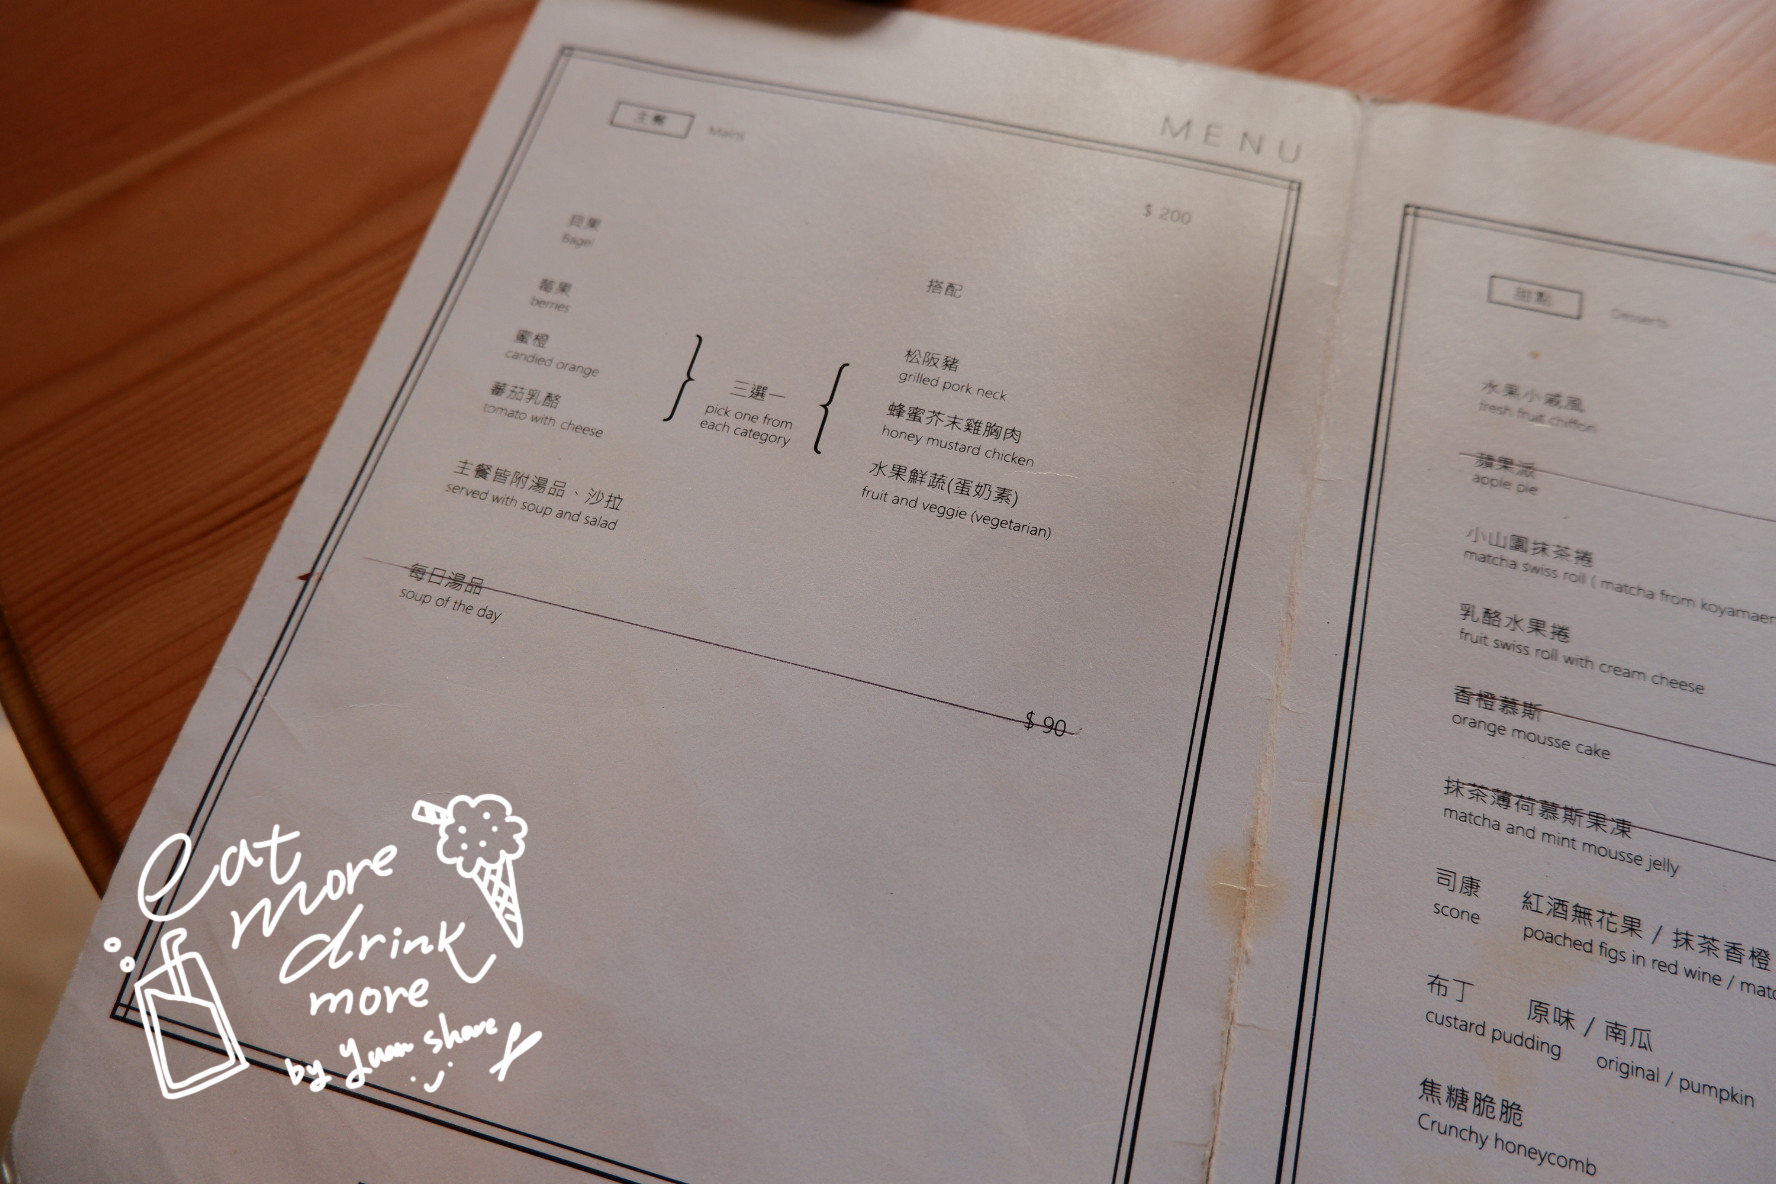 MENU
主餐 Mains
$ 200
貝果
Bagel
莓果
berries
蜜橙
candied orange
蕃茄乳酪
tomato with cheese
三選一
pick one from
each category
搭配
松阪豬
grilled pork neck
蜂蜜芥末雞胸肉
honey mustard chicken
水果鮮蔬(蛋奶素)
fruit and veggie (vegetarian)
主餐皆附湯品、沙拉
served with soup and salad
每日湯品
soup of the day
$ 90
甜點 Desserts
水果小戚風
fresh fruit chiffon
蘋果派
apple pie
小山園抹茶捲
matcha swiss roll ( matcha from koyamaen
乳酪水果捲
fruit swiss roll with cream cheese
香橙慕斯
orange mousse cake
抹茶薄荷慕斯果凍
matcha and mint mousse jelly
司康 紅酒無花果 / 抹茶香橙
scone poached figs in red wine / matc
布丁 原味 / 南瓜
custard pudding original / pumpkin
焦糖脆脆
Crunchy honeycomb
eat
more
drink
more
by Yuan share